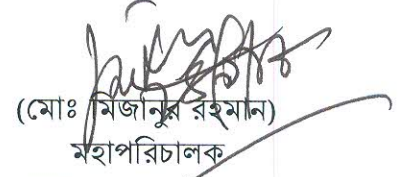 (মোঃ মিজানুর রহমান)
মহাপরিচালক